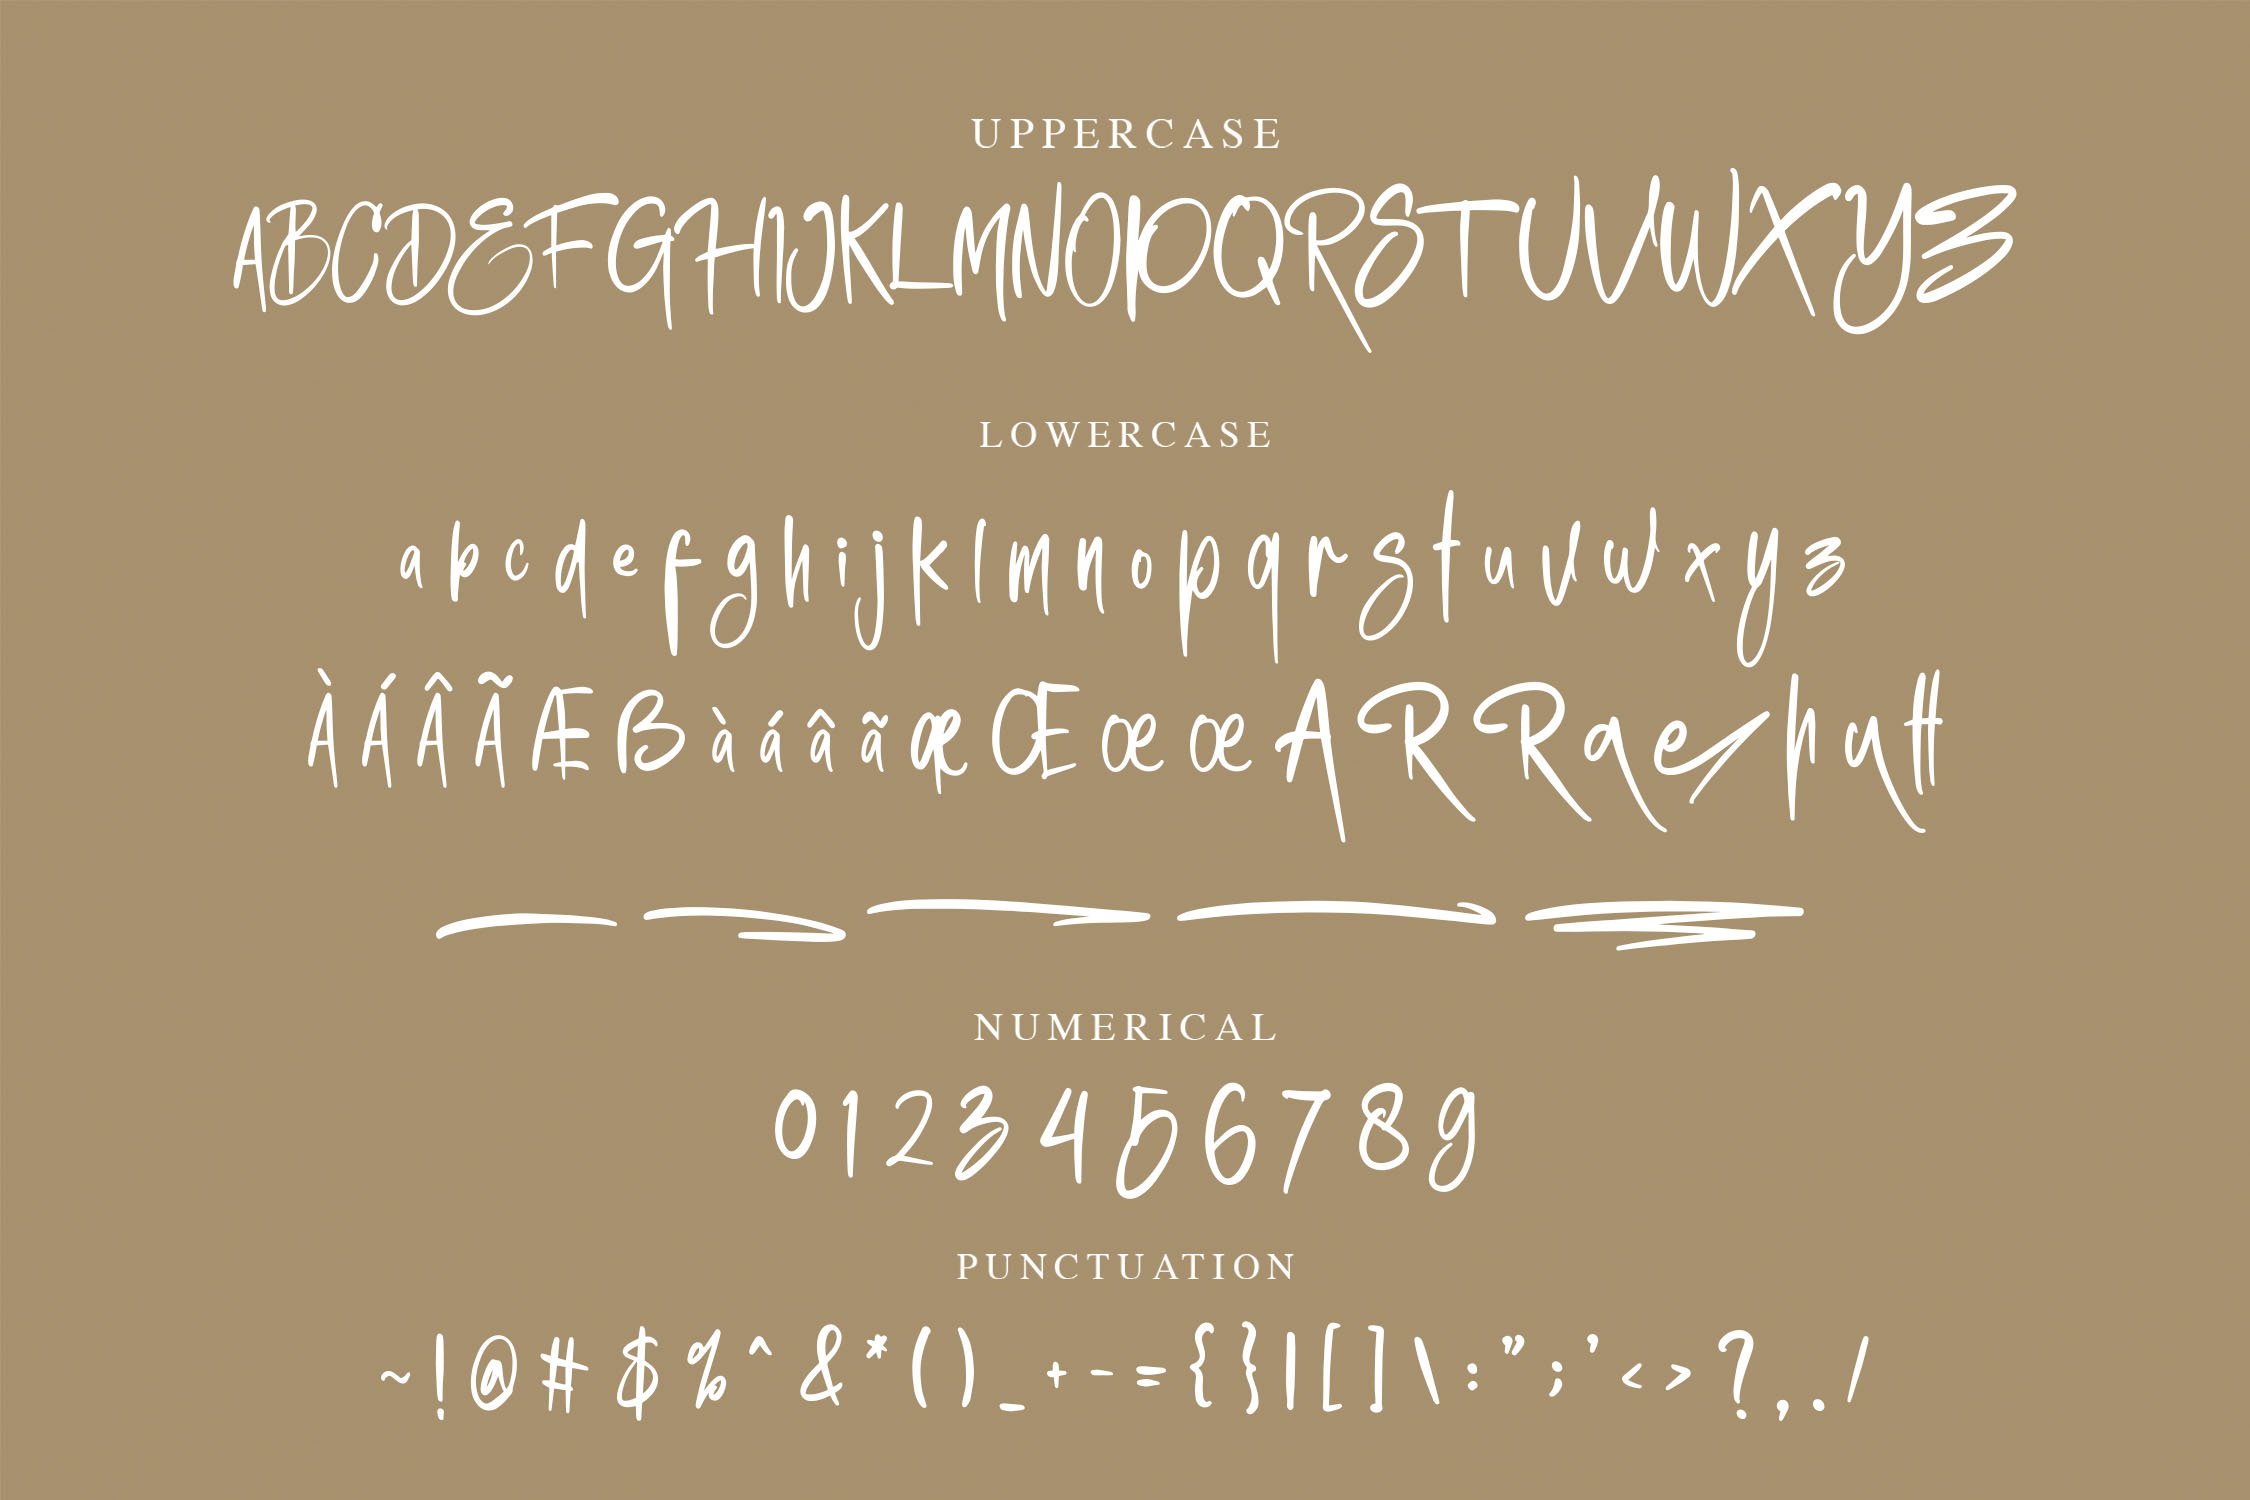 UPPERCASE
ABCDEFGHIJKLMNOPQRSTUVWXYZ
LOWERCASE
abcdefghijklmnopqrstuvwxyz
ÀÁÂÃÆßàáâãæŒœœARRaehatt
NUMERICAL
0123456789
PUNCTUATION
~!@#$%^&*()_+-={}|[]\:”;’<>?,./